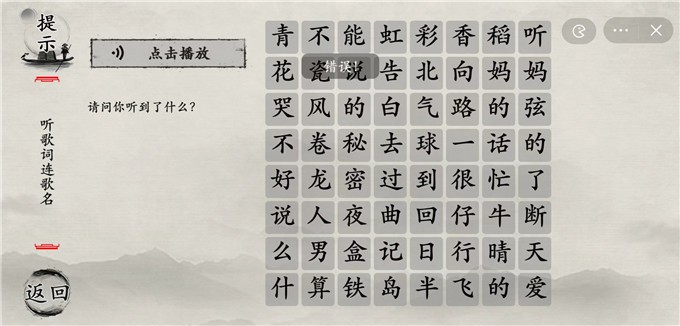 提示
点击播放
请问你听到了什么?
听歌词连歌名
返回
错误!
青不能虹彩香稻听
花瓷说告北向妈妈
哭风的白气路的弦
不卷秘去球一话的
好龙密过到很忙了
说人夜曲回仔牛断
么男盒记日行晴天
什算铁岛半飞的爱